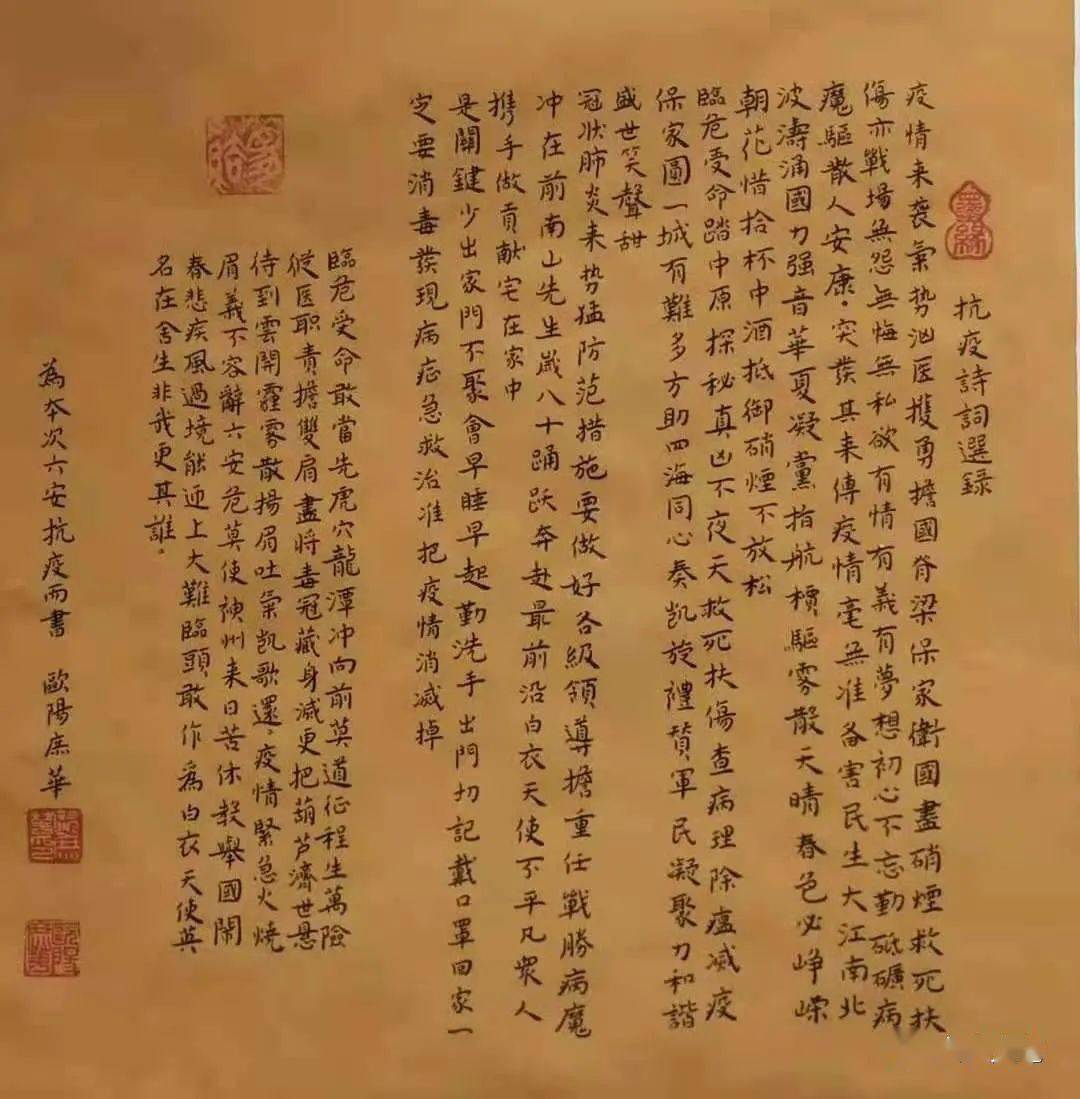 抗疫詩詞選录
疫情来袭氣势汹医護勇擔國脊梁保家衛國盡硝煙救死扶
傷亦戰場無怨無悔無私欲有情有義有夢想初心不忘勤砥礪病
魔驅散人安康。突发其来傳疫情毫無准备害民生大江南北
波濤涌國力强音華夏凝黨指航標驅雾散天晴春色必峥嵘
朝花惜拾杯中酒抵御硝煙不放松
臨危受命踏中原探秘真凶不夜天救死扶傷查病理除瘟减疫
保家圖一城有難多方助四海同心奏凯旋禮贊軍民凝聚力和諧
盛世笑聲甜
冠状肺炎来势猛防范措施要做好各級領導擔重任戰勝病魔
冲在前南山先生歲八十踊跃奔赴最前沿白衣天使不平凡衆人
携手做貢献宅在家中
是關鍵少出家門不聚會早睡早起勤洗手出門切記戴口罩回家一
定要消毒發現病症急救治准把疫情消减掉
臨危受命敢當先虎穴龍潭冲向前莫道征程生萬險
從医职责擔雙肩盡將毒冠藏身减更把葫芦濟世懸
待到雲開霾雾散揚眉吐氣凯歌還。疫情緊急火燒
眉義不容辭六安危莫使神州来日苦休教舉國鬧
春悲疾風過境能迎上大難臨頭敢作爲白衣天使英
名在舍生非我更其誰。
為本次六安抗疫而書 歐陽庶華